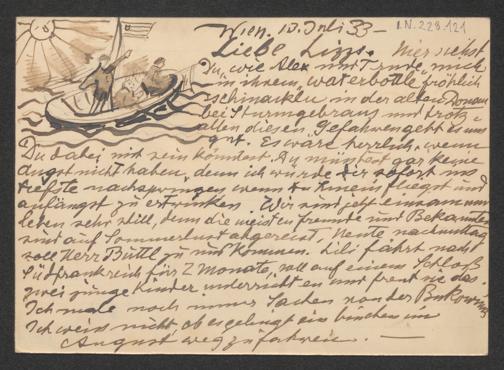 I.N. 228.121
Wien. 10. Juli 33 –
Liebe Lizzi. Hier siehst
Du, wie Alex und Trude, mich
in ihrem „waterbottle" fröhlich
schinackln in der alten Donau
bei Sturmgebraus und trotz
allen diesen Gefahren geht es uns
gut. Es wäre herrlich, wenn
Du dabei mit sein könntest. Du müsstest gar keine
Angst nicht haben, denn ich würde dir sofort ins
tiefste nachspringen wenn Du hineinfliegst und
anfängst zu ertrinken. Wir sind jetzt einsam und
leben sehr still, denn die meisten Freunde und Bekannten
sind auf Sommerlust abgereist, heute nachmittag
soll Herr Büttl zu uns kommen. Lili fährt nach
Südfrankreich für 2 Monate, soll auf einem Schloß
zwei junge Kinder unterrichten und freut sie das.
Ich male noch immer Sachen von der Bukowina
Ich weiss nicht, ob es gelingt ein bischen im
August wegzufahren. —